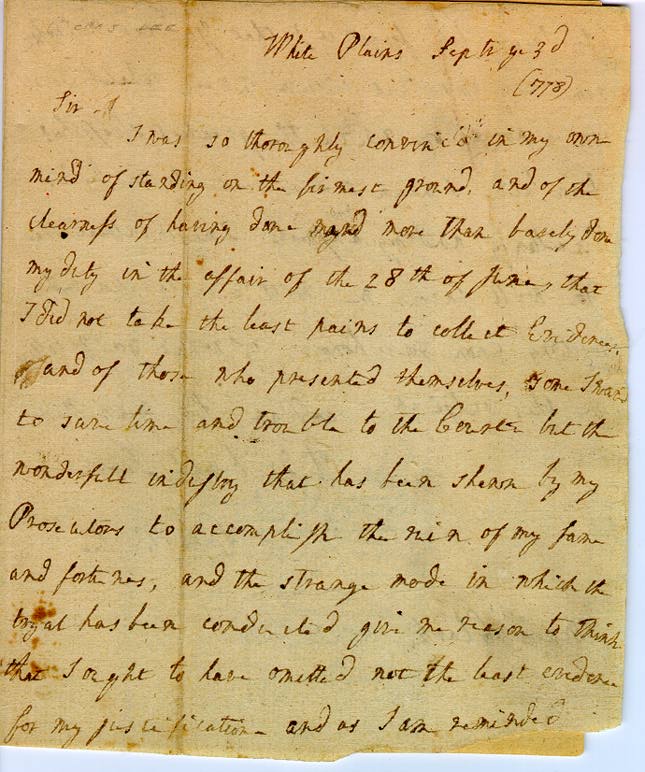 CHAS LEE
White Plains Septr ye 3d
(1778)
Sir
I was so thoroughly convinc'd in my own
mind of standing on the firmest ground, and of the
clearness of having done more than barely done
my duty in the affair of the 28th of June, that
I did not take the least pains to collect Evidences,
and of those who presented themselves, some I
to save time and trouble to the Court but the
wonderfull industry that has been shewn by my
Prosecutors to accomplish the ruin of my fame
and fortunes, and the strange mode in which the
tryal has been conducted give me reason to think
that I ought to have omitted not the least evidence
for my justification and as I am reminded